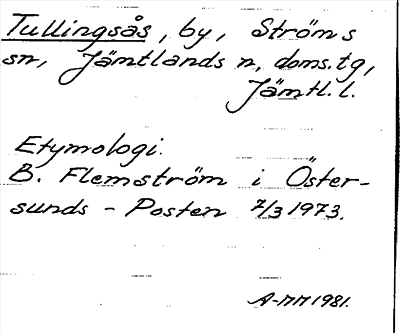 Tullingsås, by, Ströms
sn, Jämtlands n. doms.tg,
Jämtl. l.
Etymologi.
B. Flemström i Öster-
sunds-Posten 7/3 1973.
A-MM 1981.